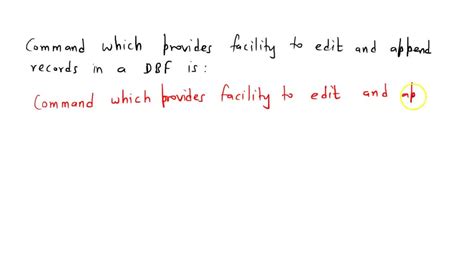 Command which provides facility to edit and append
records in a DBF is:
Command which provides facility to edit and ap